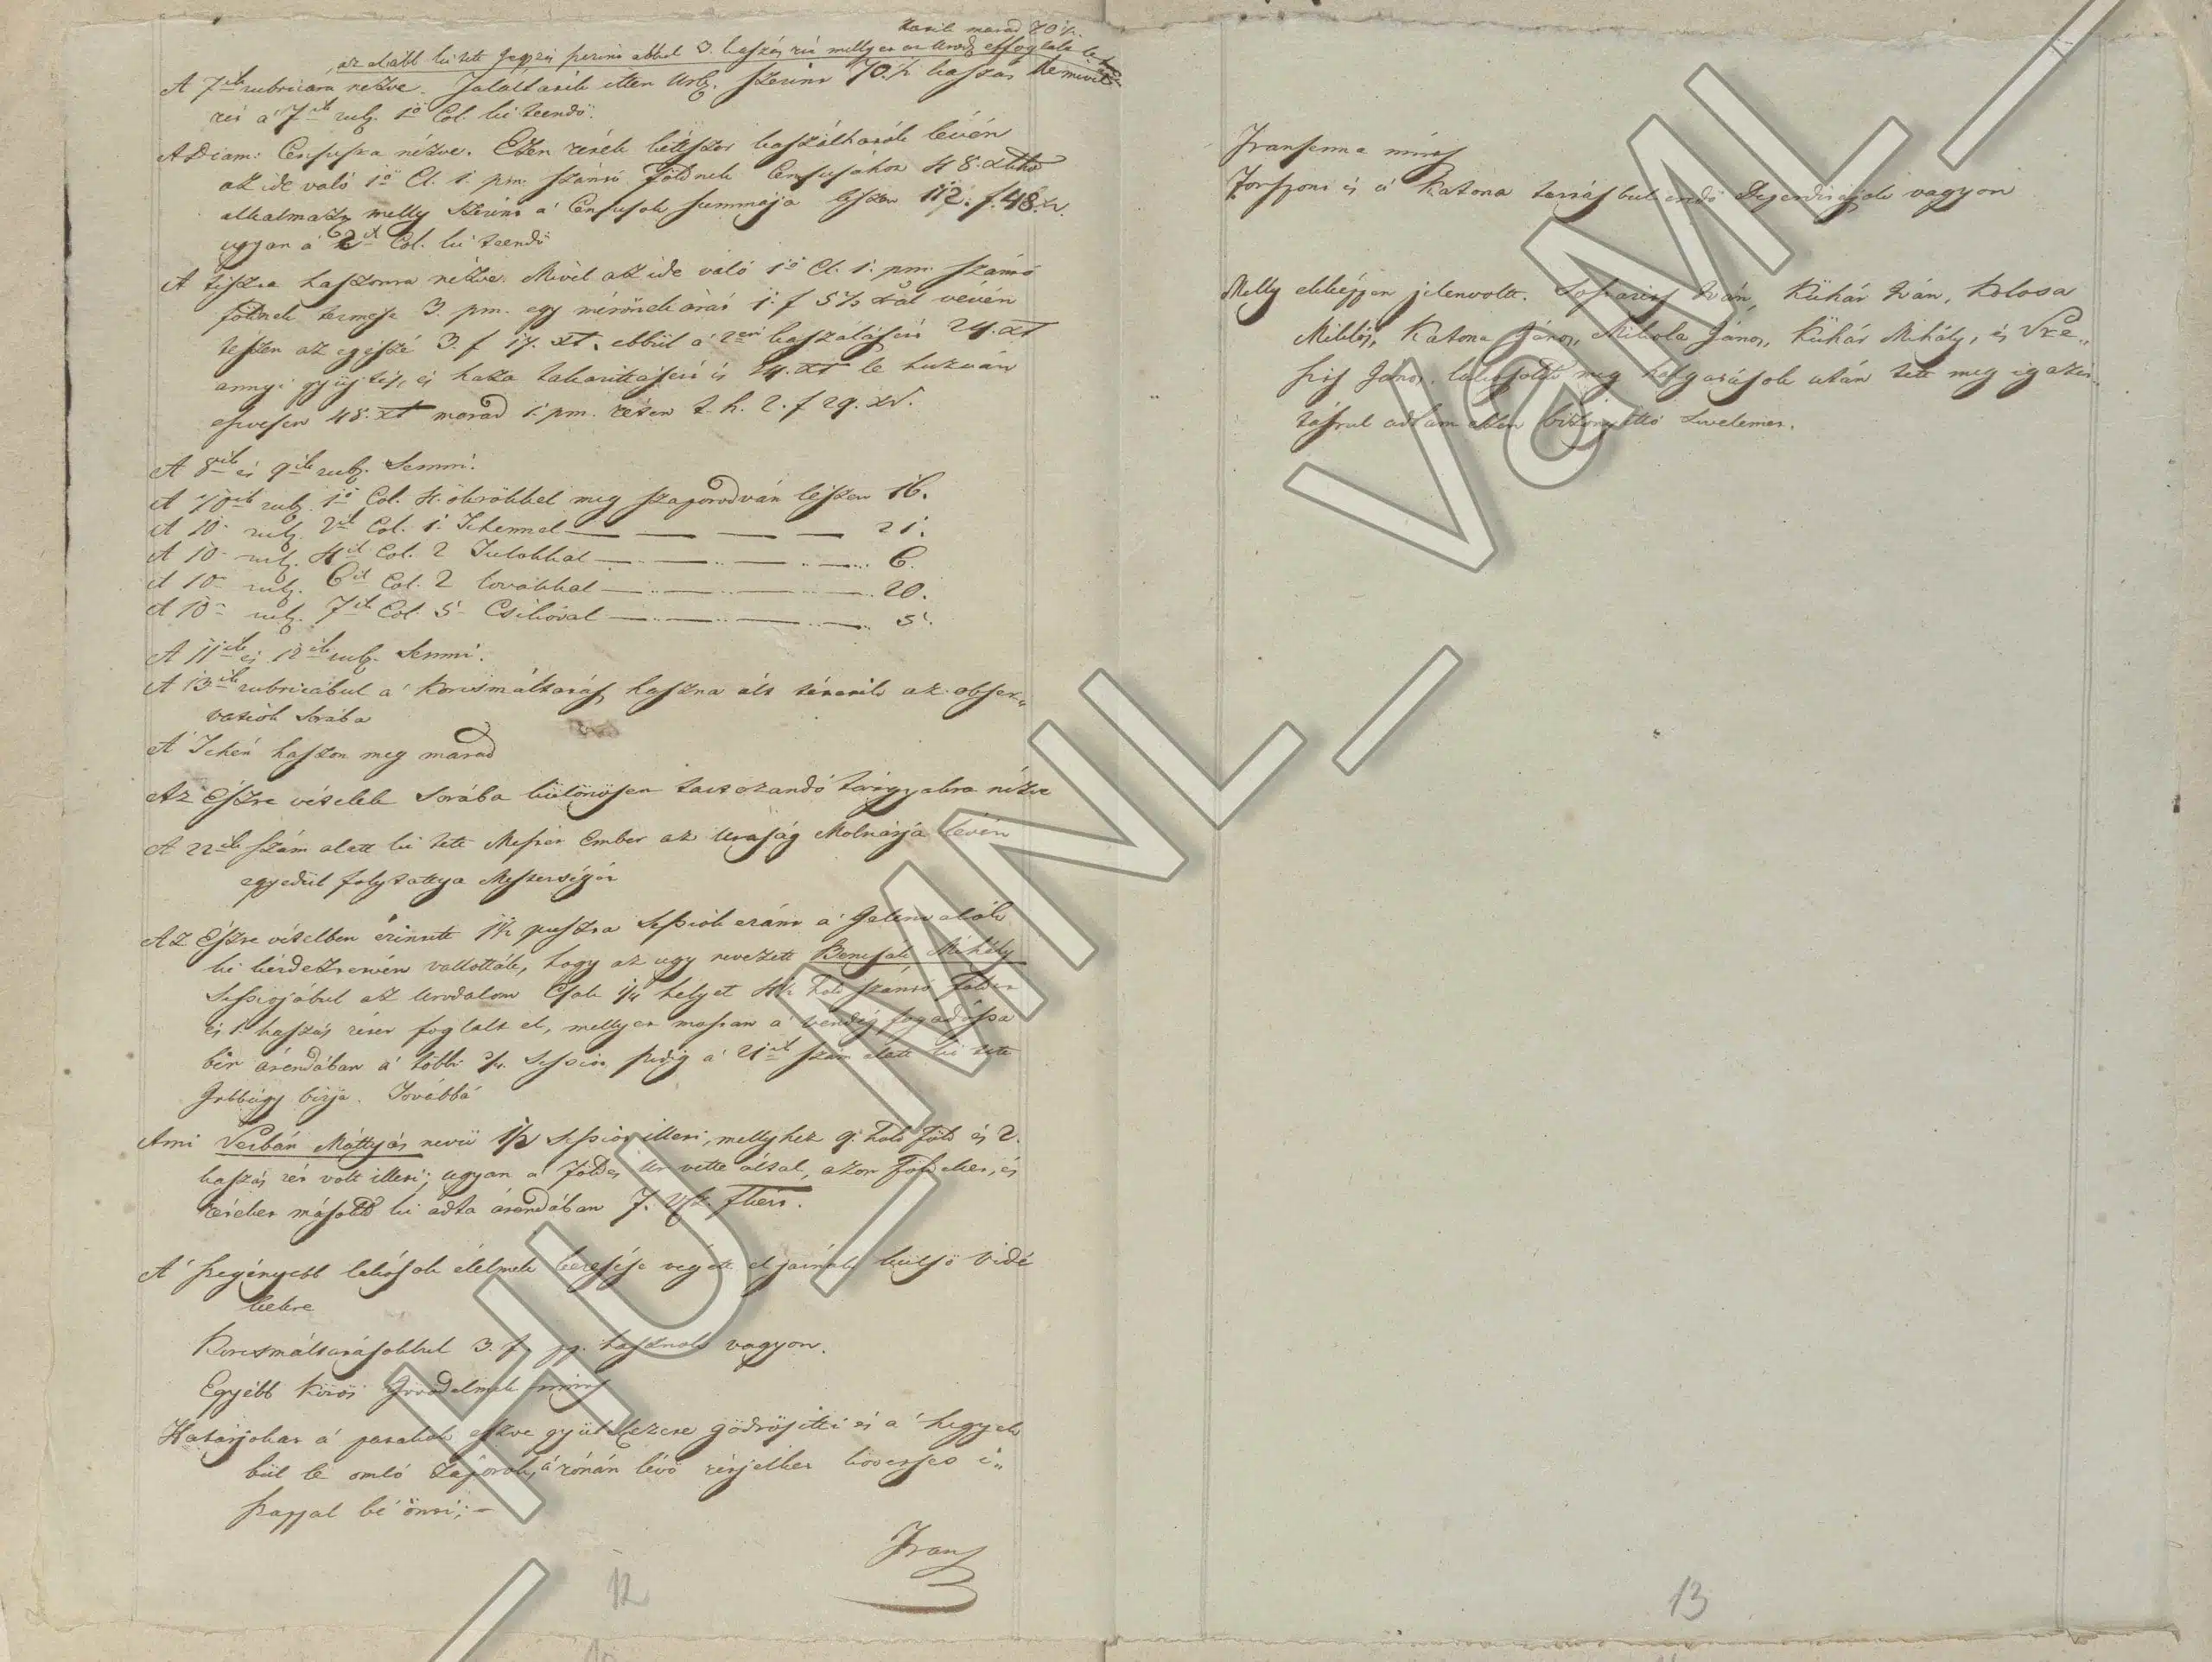 tarik marad 70 1/2.
az alább ki tett Jegyzés szerint abbul 3. kaszás rét mellyet az Urod. effoglalt le
A 7ik rubricara nézve. Találtatik itten Urb. szerint 70 1/2 kaszás
rét a' 7ik rub. 1ő Col. ki teendő.
A Dicam: Censusra nézve. Ezen rétek kétszer kaszálhatók lévén
az ide való 1ő Cl. 1. pm. szántó földnek Censusához 48. xtkt
alkalmazv. melly szerint a' Censusok summája lészen 112. f. 48. x.
ugyan a' 2ik Col. ki teendő
A tiszta haszonra nézve Mivel az ide való 1ő Cl. 1. pm. szántó
földnek termése 3. pm. egy mérőnek árát 1. f 5 1/2 xal vévén
teszen az egészé 3. f 17. xt. ebbül a' kaszálásért 24. xt
annyi gyüjtés, és haza takarittásért is 24. xt le huzván
öszvesen 48. xt marad 1. pm. réten t. h. 2. f 29. xr.
A 8ik és 9ik rub. Semmi.
A 10ik rub. 1ő Col. 4. ökrökkel meg szaporodván lészen 16.
A 10 rub. 2ik Col. 1. Tehennel — — — — 21.
A 10 rub. 4ik Col. 2 Tulokkal — — — — 6.
A 10 rub. 6ik Col. 2 lovakkal — — — — 20.
A 10 rub. 7ik Col. 5 Csikóval — — — — 5.
A 11ik és 12ik rub. Semmi.
A 13ik rubricábul a' Korcsmáltatás haszna ált tétetik az obser„
vatiók Sorába
A' Tehén haszon meg marad
Az Észre vételek Sorába különösen tartozandó tárgyakra nézve
A 22ik szám alatt ki tett Mester Ember az Uraság Molnárja lévén
egyedül folytattya Mesterségét
Az Észre vételben érintett 1 1/2 puszta Sessiók eránt a' Jelen valók
ki kérdeztetvén vallották, hogy az ugy nevezett Mihály
Sessiojábul az Urodalom Csak 1/4 helyet 4 1/2 hold szántó földet
és 1. kaszás rétet foglalt el, mellyet mostan a' vendég fogadóssa
bir árendában a' többi Sessiót pedig a' 21ik szám alatt ki tett
Jobbágy birja. Továbbá
Ami Verbán Máttyás nevü 1/2 Sessiót illeti, mellyhez 9. hold föld és 2.
kaszás rét volt illeti; ugyan a' Földes Ur vette által, azon földeket, és
réteket másoknak ki adta árendában
A' szegényebb lakosok élelmek keresése végett el járnak külső vidé
kekre
Korcsmáltatásokbul 3. f. pp. hasznok vagyon.
Egyébb közös Jövedelmek nints
Határjokat a' patakok öszve gyülekezete gödrösitti és a' hegyek
bül le omló záporok, a' rónán lévő rétjeiket köveches i„
szappal bé önti; —
Trans
12
Transenna nints
Torsponi és a' Katona tartásbul eredő Deperditájok vagyon
Melly ekképpen jelenvolt. Iván, Kühár Iván, Kolosa
Miklós, Katona János, Mikola János, Kühár Mihály, és
János lakosoktól meg halgatások után tett meg igazi
tásrul adtam ezen bizonyittó Levelemet.
13
HU_MNL_VaML_